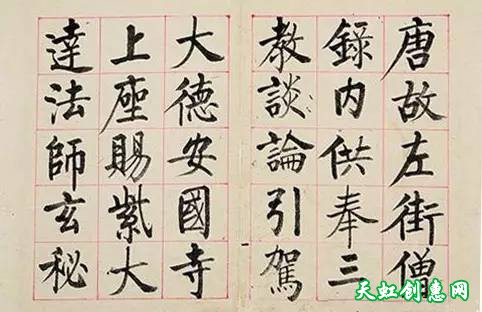 唐故左街僧
錄內供奉三
教談論引駕
大德安國寺
上座賜紫大
達法師玄秘
天虹创惠网